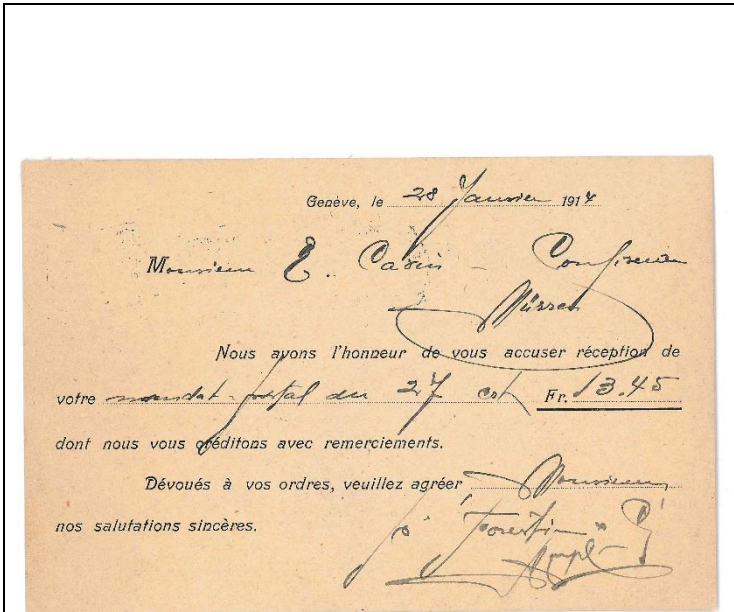 Genève, le 28 Janvier 1914
Monsieur E. Confiseur
Nous avons l'honneur de vous accuser réception de
votre mandat-postal du 27 ct Fr. 13.45
dont nous vous créditons avec remerciements.
Dévoués à vos ordres, veuillez agréer Monsieur
nos salutations sincères.